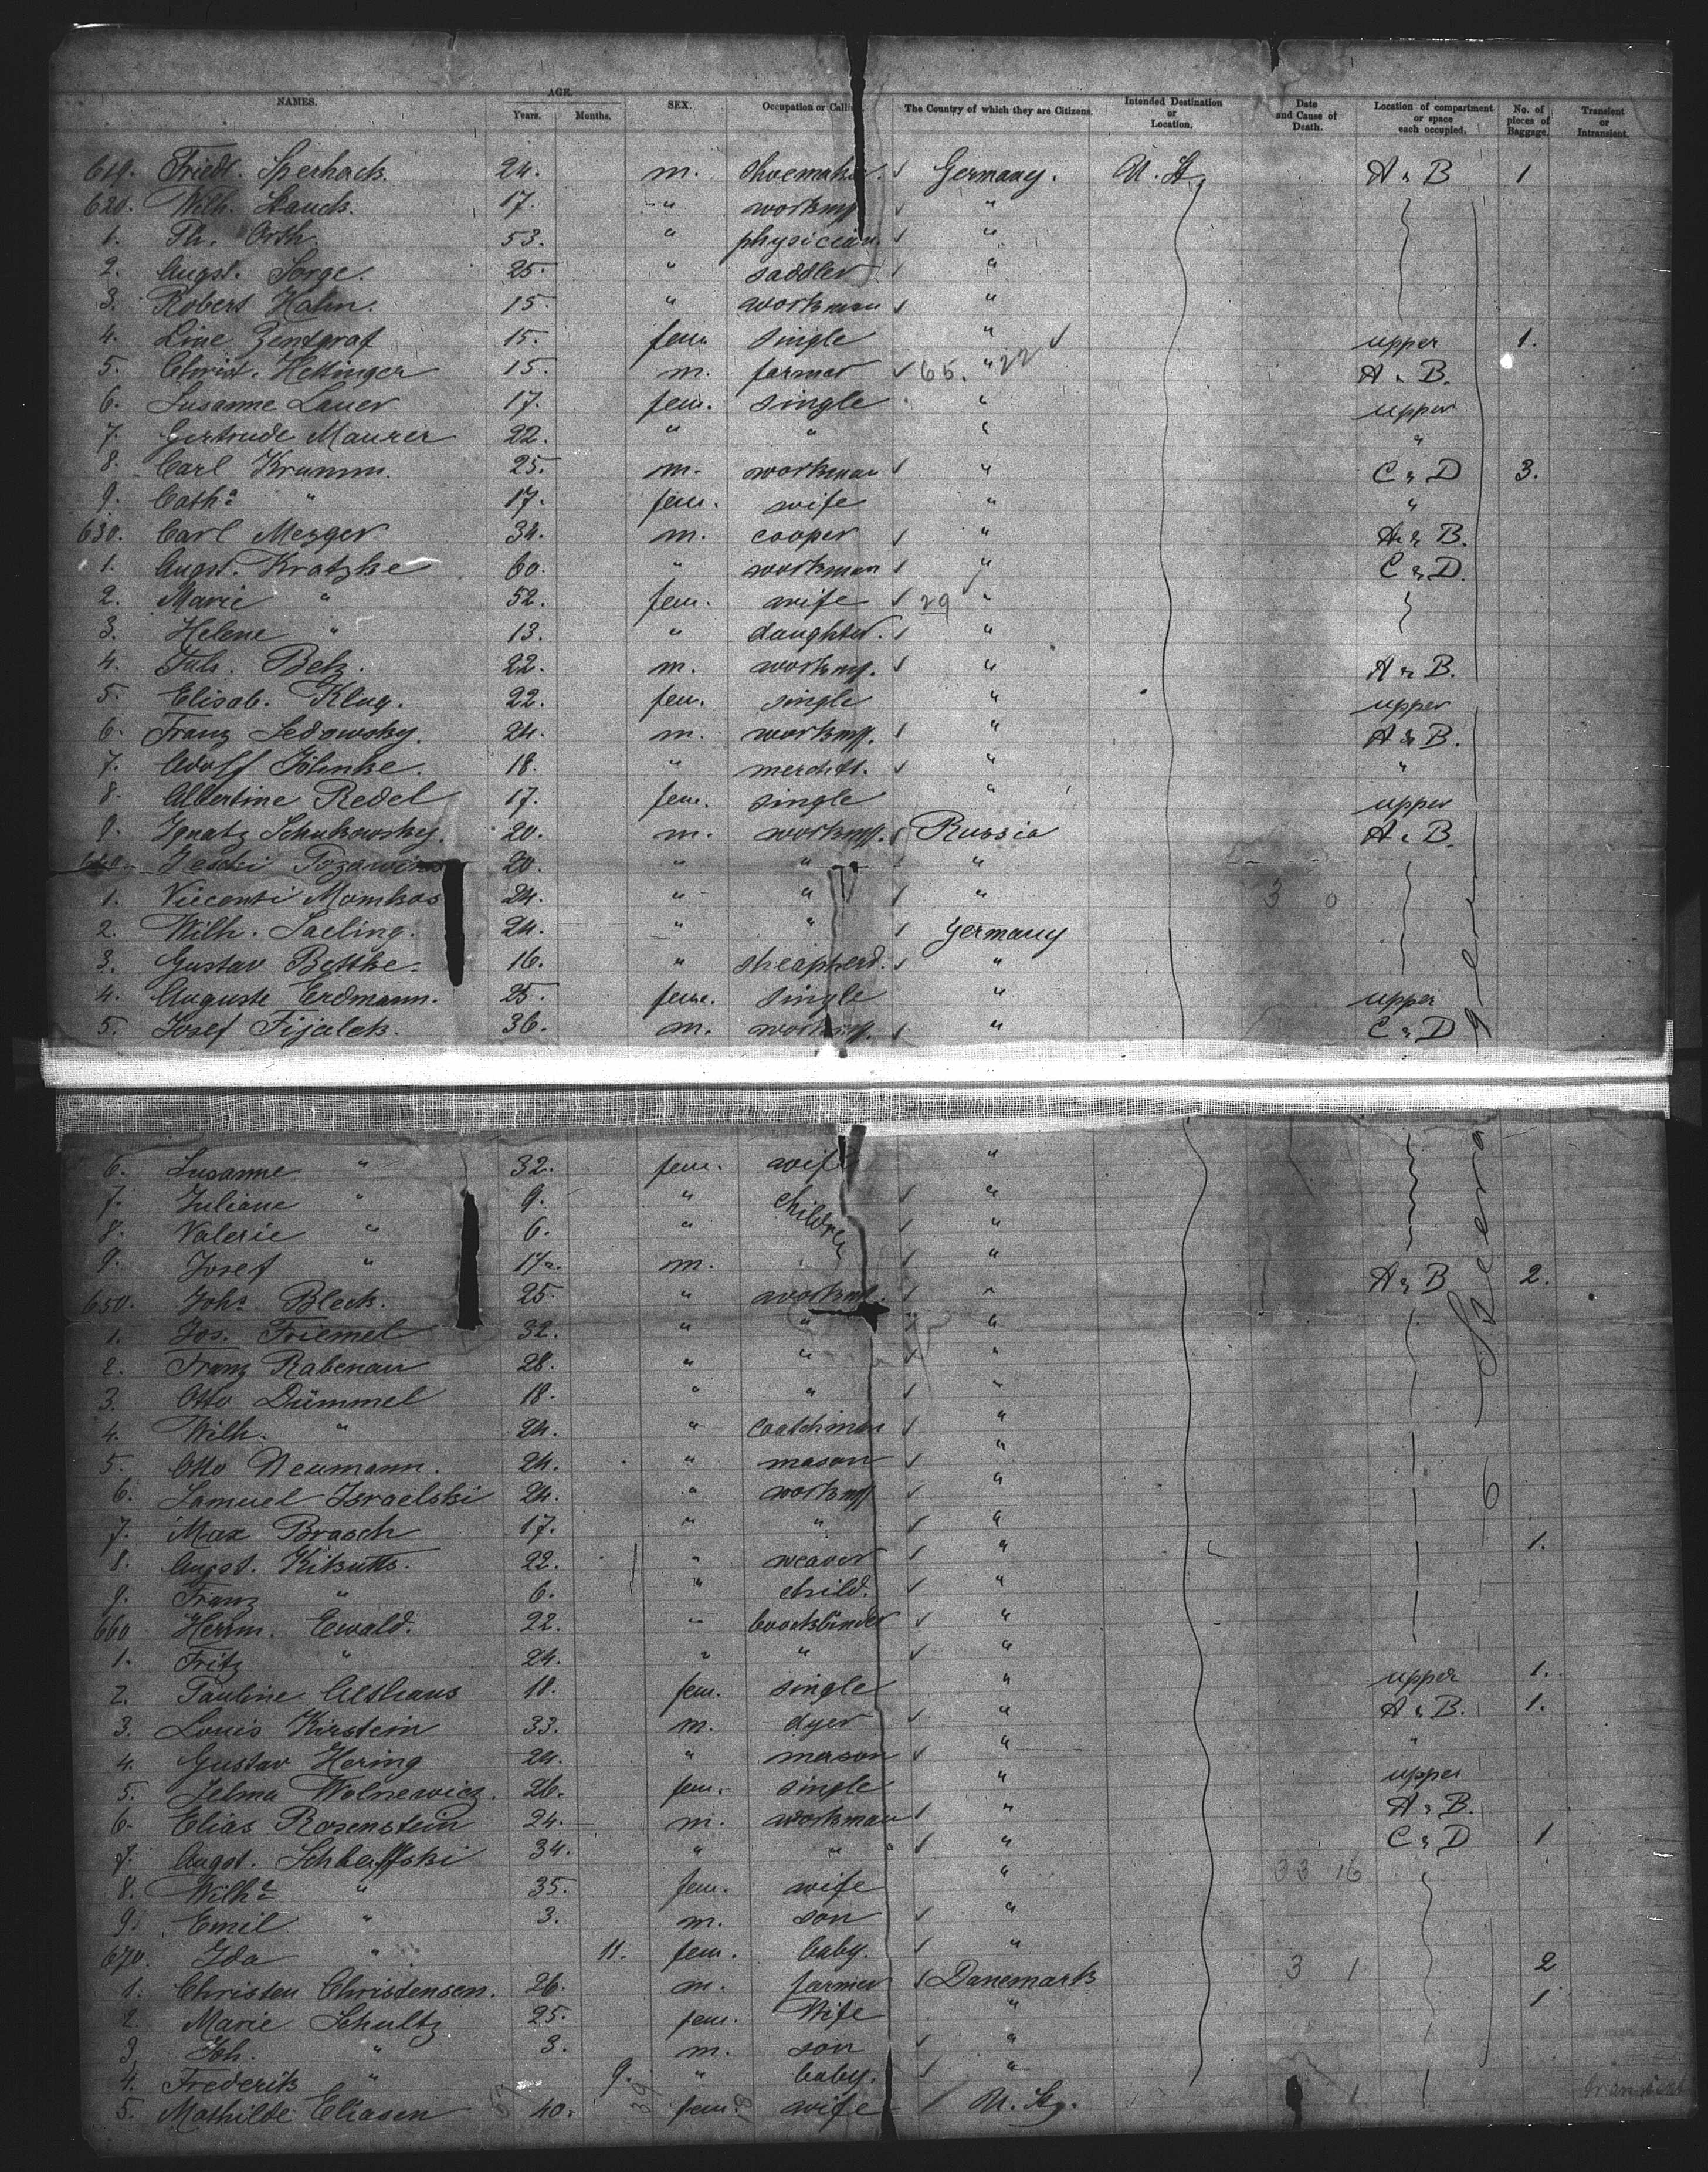 NAMES. AGE. Years. Months. SEX. Occupation or Calling The Country of which they are Citizens. Intended Destination or Location. Date and Cause of Death. Location of compartment or space each occupied. No. of pieces of Baggage. Transient or Intransient.
619. Friedr. Sperhack. 24. m. shoemaker. Germany. U. St. A & B 1
620. Wilh. Hauck. 17. " workmn "
1. Th. Orth. 53. " physician. "
2. Augst. Sorge. 25. " saddler "
3. Robert Hahn. 15. " workman "
4. Line Zentgraf 15. fem single " upper 1.
5. Christ. Hettinger 15. m. farmer 65. " 22 A & B.
6. Susanne Lauer 17. fem. single " upper
7. Gertrude Maurer 22. " " " "
8. Carl Krumm. 25. m. workman " C & D 3.
9. Cath.a " 17. fem. wife " "
630. Carl Mezger 34. m. cooper " A & B.
1. Augst. Kratzke 60. " workman " C & D.
2. Marie " 52. fem. wife 29 "
3. Helene " 13. " daughter. "
4. Jul. Betz. 22. m. workmn. " A & B.
5. Elisab. Klug. 22. fem. single " upper
6. Franz Sedowsky. 24. m. workmn. " A & B.
7. Adolf 18. " merchtt. " "
8. Albertine Redel 17. fem. single " upper
9. Ignatz Schukowsky. 20. m. workmn. Russia A & B.
640. 20. " " "
1. Vicenti Momkos 24. " " " 3 0
2. Wilh. Saeling. 24. " " Germany
3. Gustav Bettke. 16. " sheapherd. "
4. Auguste Erdmann. 25. fem. single " upper
5. Josef Fijalek. 36. m. workmn. " C & D
6. Susanne " 32. fem. wife "
7. Juliane " 9. " children "
8. Valerie " 6. " "
9. Josef " 1 1/2. m. "
650. Johs. Bleck. 25. " workmn. " A & B 2.
1. Jos. Friemel 32. " " "
2. Franz Rabenau 28. " " "
3. Otto Dümmel 18. " " "
4. Wilh. " 24. " coatchman "
5. Otto Neumann. 24. " mason "
6. Samuel Israelski 24. " workmn "
7. Max Brasch 17. " " " 1.
8. Augst. Kikutts. 22. " weaver "
9. Franz " 6. " child. "
660 Herrm. Ewald. 22. " bookbinder "
1. Fritz " 24. " " "
2. Pauline Althaus 18. fem. single " upper 1.
3. Louis Kirstein 33. m. dyer " A & B. 1.
4. Gustav Hering 24. " mason " "
5. Selma Wolnewicz. 26. fem. single " upper
6. Elias Rosenstein 24. m. workman " A & B.
7. Augst. 34. " " " C & D 1
8. Wilh.e " 35. fem. wife " 33 16
9. Emil " 3. m. son "
670. Ida " 11. fem. baby. "
1. Christen Christensen. 26. m. farmer Danemark 3 1 2
2. Marie Schultz 25. fem. Wife " 1
3. Joh. " 3. m. son "
4. Frederik " 9. " baby. "
5. Mathilde Eliasen 40. fem. wife U. St. 1 transient
Steerage